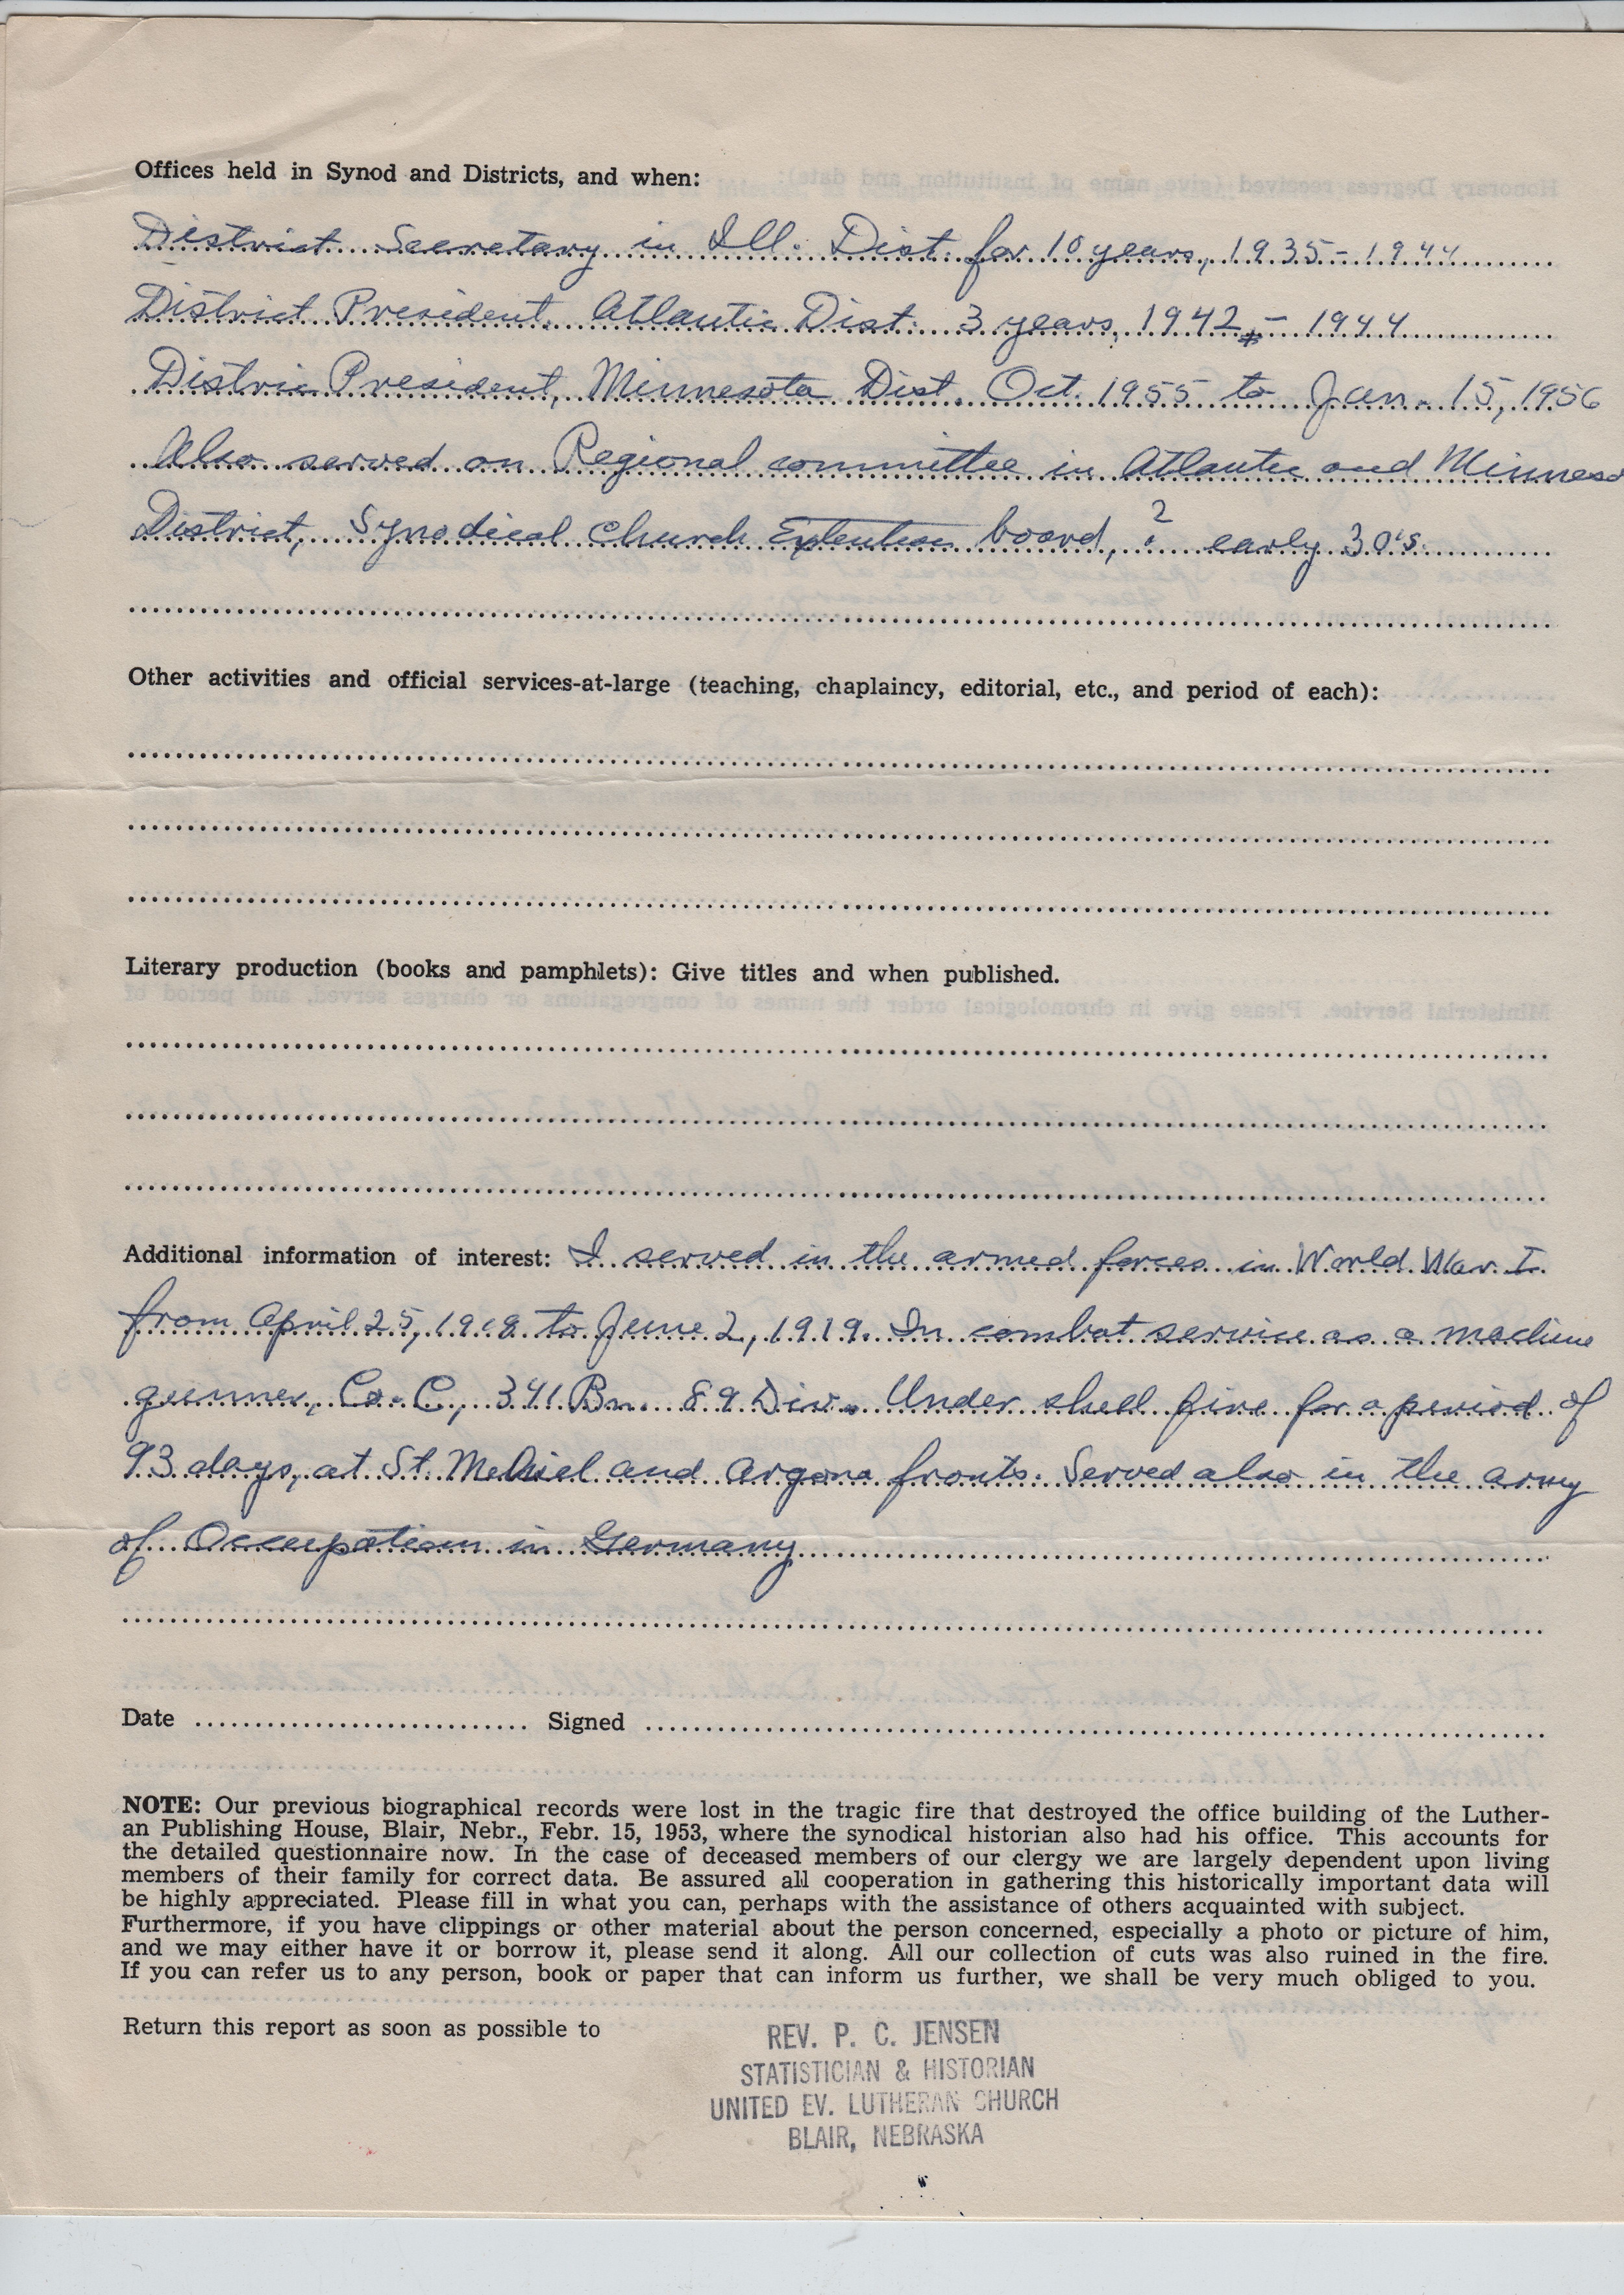 Offices held in Synod and Districts, and when:
District Secretary in Ill. Dist. for 10 years, 1935-1944
District President. Atlantic Dist. 3 years, 1942,- 1944
Distric President, Minnesota Dist. Oct. 1955 to Jan. 15, 1956
Also served on Regional committee in Atlantic and Minneso
District, Synodical Church Extention board, ? early 30's.
Other activities and official services-at-large (teaching, chaplaincy, editorial, etc., and period of each):
Literary production (books and pamphlets): Give titles and when published.
Additional information of interest: I served in the armed forces in World War I.
from April 25, 1918 to June 2, 1919. In combat service as a machine
gunner, Co. C, 341 Bn. 89 Div. Under shell fire for a period of
93 days, at St. Mehiel and Argone fronts. Served also in the army
of Occupation in Germany
Date Signed
NOTE: Our previous biographical records were lost in the tragic fire that destroyed the office building of the Luther-
an Publishing House, Blair, Nebr., Febr. 15, 1953, where the synodical historian also had his office. This accounts for
the detailed questionnaire now. In the case of deceased members of our clergy we are largely dependent upon living
members of their family for correct data. Be assured all cooperation in gathering this historically important data will
be highly appreciated. Please fill in what you can, perhaps with the assistance of others acquainted with subject.
Furthermore, if you have clippings or other material about the person concerned, especially a photo or picture of him,
and we may either have it or borrow it, please send it along. All our collection of cuts was also ruined in the fire.
If you can refer us to any person, book or paper that can inform us further, we shall be very much obliged to you.
Return this report as soon as possible to
REV. P. C. JENSEN
STATISTICIAN & HISTORIAN
UNITED EV. LUTHERAN CHURCH
BLAIR, NEBRASKA